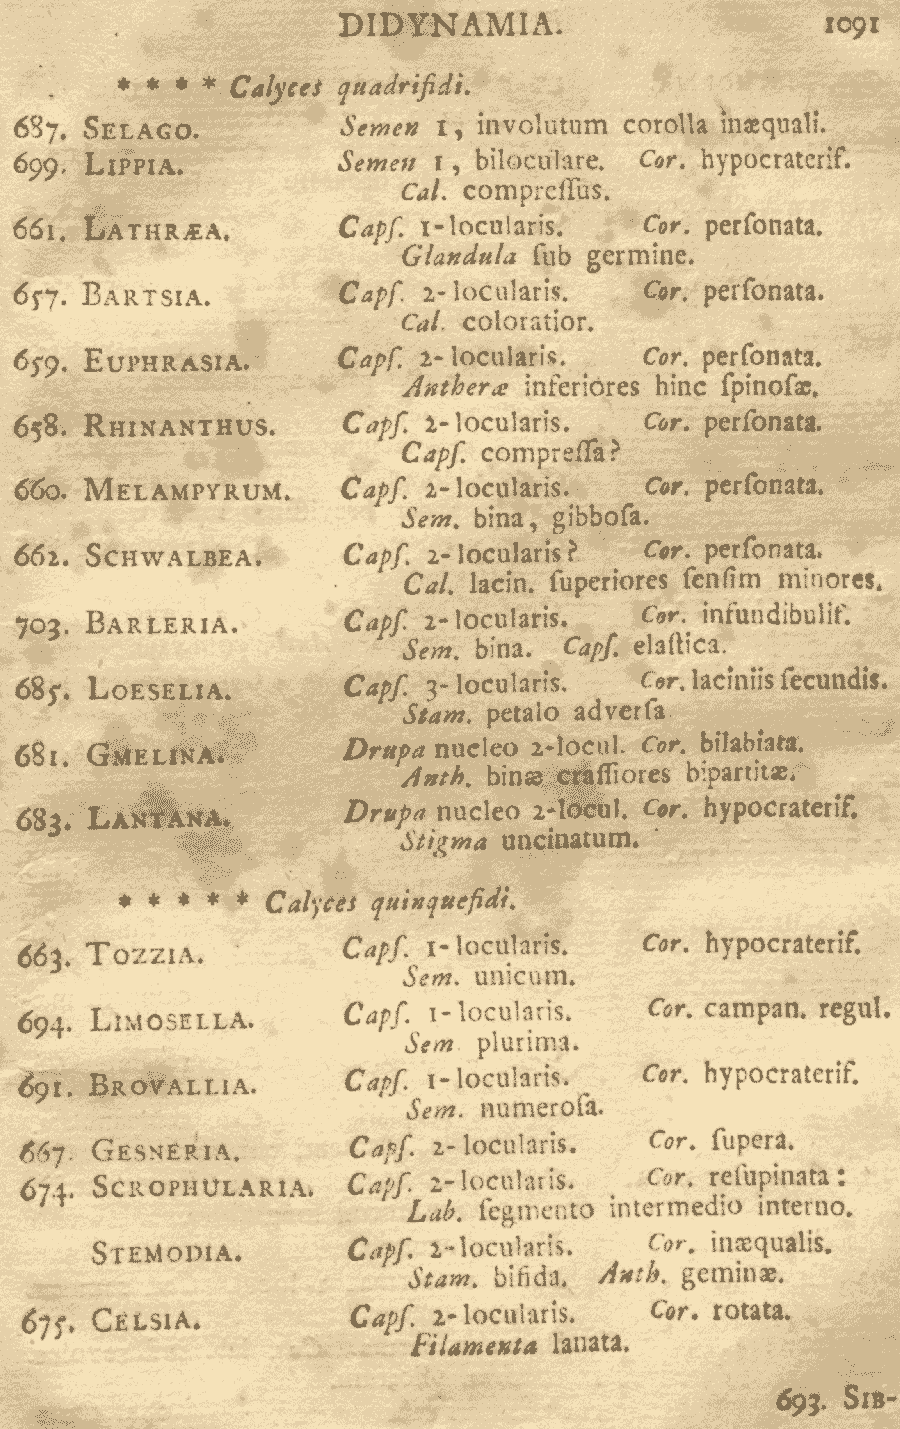 DIDYNAMIA. 1091
* * * * Calyces quadrifidi.
687. SELAGO. Semen 1, involutum corolla inæquali.
699. LIPPIA. Semen 1, biloculare. Cor. hypocraterif.
Cal. compreſſus.
661. LATHRÆA. Capſ. 1-locularis. Cor. perſonata.
Glandula ſub germine.
657. BARTSIA. Capſ. 2-locularis. Cor. perſonata.
Cal. coloratior.
659. EUPHRASIA. Capſ. 2-locularis. Cor. perſonata.
Antheræ inferiores hinc ſpinoſæ.
658. RHINANTHUS. Capſ. 2-locularis. Cor. perſonata.
Capſ. compreſſa?
660. MELAMPYRUM. Capſ. 2-locularis. Cor. perſonata.
Sem. bina, gibboſa.
662. SCHWALBEA. Capſ. 2-locularis? Cor. perſonata.
Cal. lacin. ſuperiores ſenſim minores.
703. BARLERIA. Capſ. 2-locularis. Cor. infundibulif.
Sem. bina. Capſ. elaſtica.
685. LOESELIA. Capſ. 3-locularis. Cor. laciniis ſecundis.
Stam. petalo adverſa
681. GMELINA. Drupa nucleo 2-locul. Cor. bilabiata.
Anth. binæ craſſiores bipartitæ.
683. LANTANA. Drupa nucleo 2-locul. Cor. hypocraterif.
Stigma uncinatum.
* * * * * Calyces quinquefidi.
663. TOZZIA. Capſ. 1-locularis. Cor. hypocraterif.
Sem. unicum.
694. LIMOSELLA. Capſ. 1-locularis. Cor. campan. regul.
Sem plurima.
691. BROVALLIA. Capſ. 1-locularis. Cor. hypocraterif.
Sem. numeroſa.
667. GESNERIA. Capſ. 2-locularis. Cor. ſupera.
674. SCROPHULARIA. Capſ. 2-locularis. Cor. reſupinata:
Lab. ſegmento intermedio interno.
STEMODIA. Capſ. 2-locularis. Cor. inæqualis.
Stam. bifida. Anth. geminæ.
675. CELSIA. Capſ. 2-locularis. Cor. rotata.
Filamenta lanata.
693. SIB-